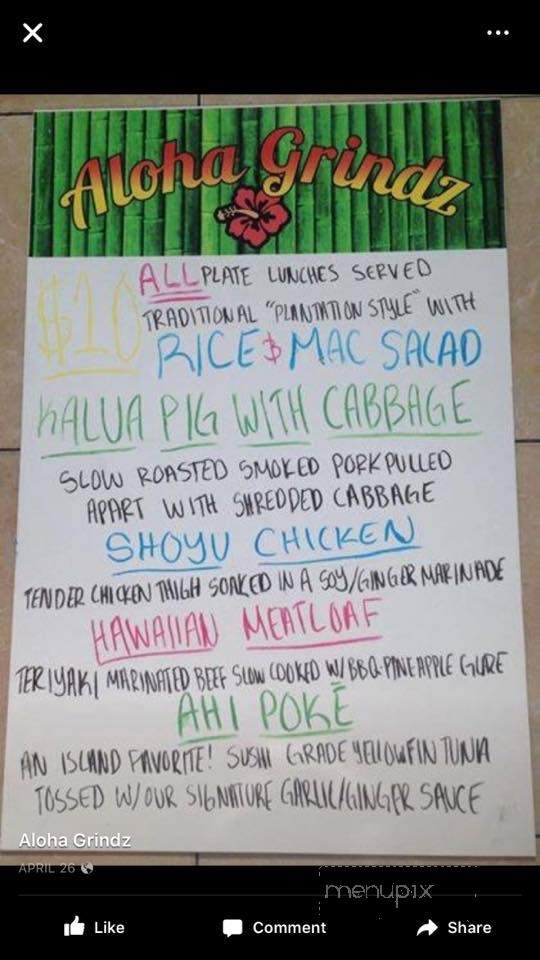 Aloha Grindz
$10
ALL PLATE LUNCHES SERVED
TRADITIONAL "PLANTATION STYLE" WITH
RICE & MAC SALAD
KALUA PIG WITH CABBAGE
SLOW ROASTED SMOKED PORK PULLED
APART WITH SHREDDED CABBAGE
SHOYU CHICKEN
TENDER CHICKEN THIGH SOAKED IN A SOY/GINGER MARINADE
HAWAIIAN MEATLOAF
TERIYAKI MARINATED BEEF SLOW COOKED W/BBQ-PINEAPPLE GLAZE
AHI POKĒ
AN ISLAND FAVORITE! SUSHI GRADE YELLOWFIN TUNA
TOSSED W/OUR SIGNATURE GARLIC/GINGER SAUCE
Aloha Grindz
APRIL 26
menupix
Like Comment Share